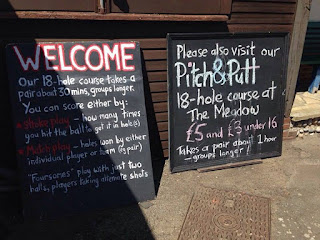 WELCOME
Our 18-hole course takes a
pair about 30 mins, groups longer.
You can score either by:
★ Stroke play - how many times
you hit the ball to get it in hole(s)
★ Match play - holes won by either
individual player or team (eg pair)
"Foursomes" play with just two
balls, players taking alternate shots
Please also visit our
Pitch&Putt
18-hole course at
The Meadow
£5 and £3 under 16
Takes a pair about 1 hour
- groups longer